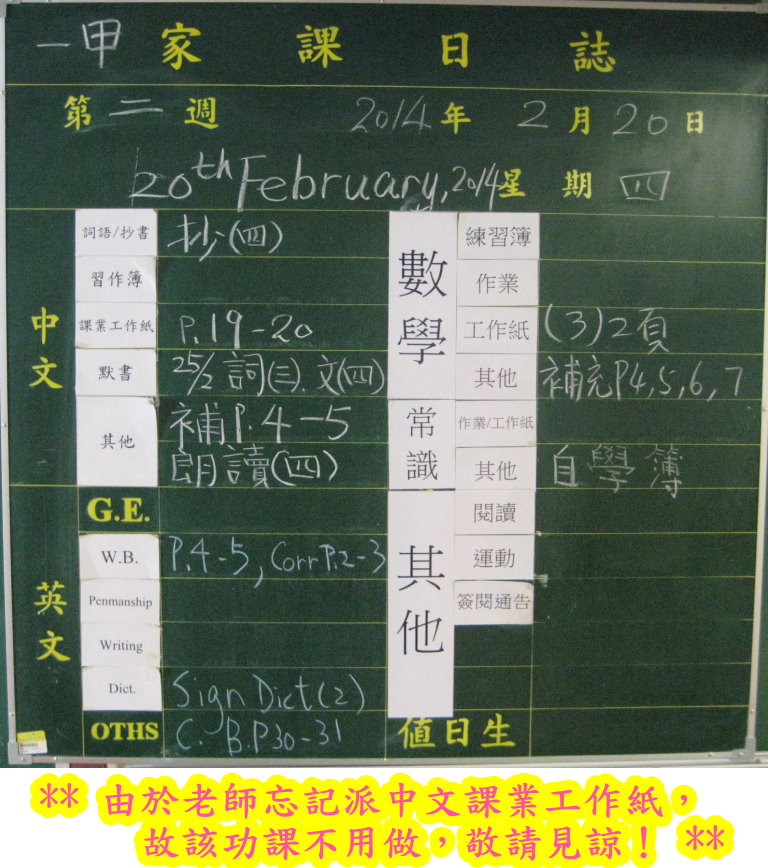 一甲 家課日誌
第二週 2014年2月20日
20th February, 2014 星期四
中文
詞語/抄書 抄(四)
習作簿
課業工作紙 P.19-20
默書 25/2 詞(三). 文(四)
其他 補P.4-5
朗讀(四)
英文
G.E.
W.B. P.4-5, Corr P.2-3
Penmanship
Writing
Dict. Sign Dict(2)
OTHS C. B.P30-31
數學
練習簿
作業
工作紙 (3)2頁
其他 補充P4,5,6,7
常識
作業/工作紙
其他 自學簿
其他
閱讀
運動
簽閱通告
值日生
** 由於老師忘記派中文課業工作紙，
故該功課不用做，敬請見諒！ **